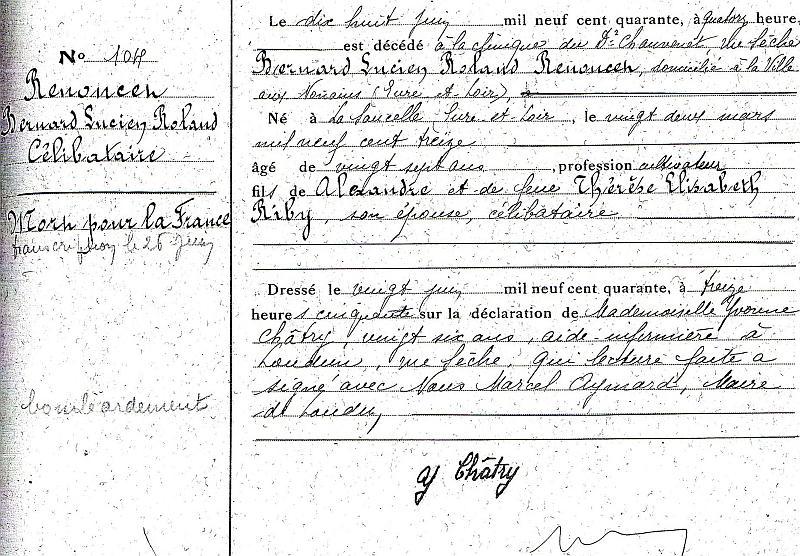 N° 104
Renoncen
Bernard Lucien Roland
Célibataire
Mort pour la France
transcription le 26 juin
bombardement
Le dix huit juin mil neuf cent quarante, à quatorze heure,
est décédé à la clinique du Dr Chauvenet, rue Sèche
Bernard Lucien Roland Renoncen, domicilié à la Ville
aux Nonains (Eure et Loir),
Né à La Saucelle Eure-et-Loir, le vingt deux mars
mil neuf cent treize
âgé de vingt sept ans, profession cultivateur
fils de Alexandre et de feue Thérèse Elisabeth
Riby, son épouse, célibataire.
Dressé le vingt juin mil neuf cent quarante, à treize
heures cinquante sur la déclaration de Mademoiselle Yvonne
Châtry, vingt six ans, aide-infirmière à
Loudun, rue Sèche, qui lecture faite a
signé avec Nous Marcel Aymard, Maire
de Loudun,
y Châtry